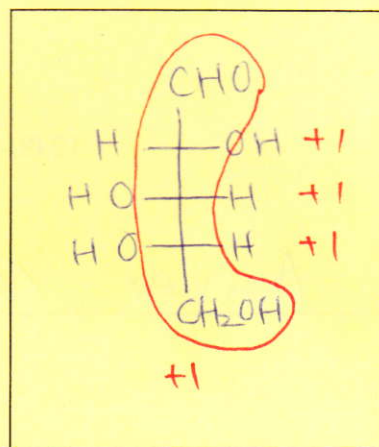 CHO
H OH +1
HO H +1
HO H +1
CH2OH
+1